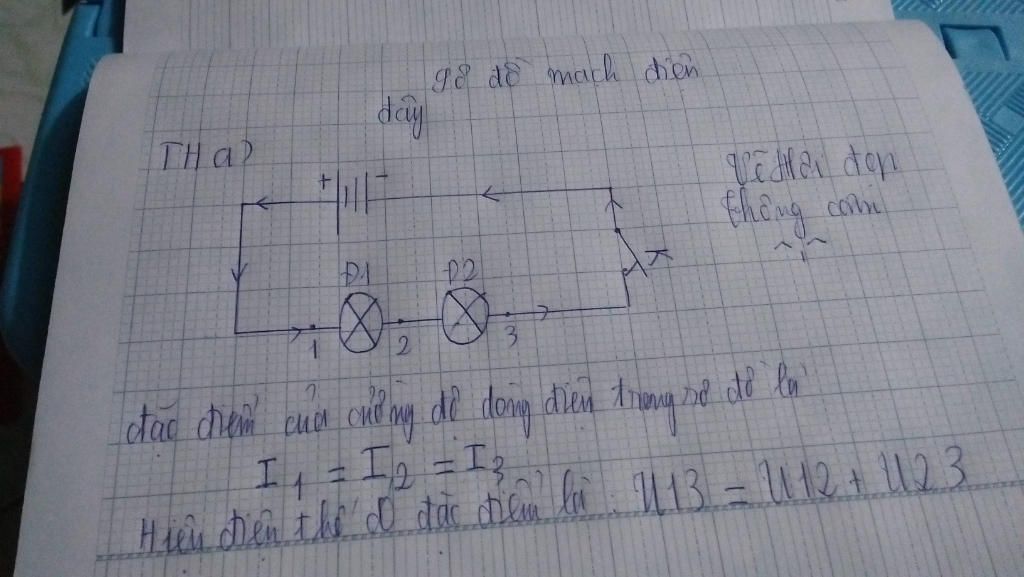 sơ đồ mạch điện
đây
TH a)
Vẽ hơi đẹp
thông cảm
^.^
+ -
Đ1 Đ2
K
1 2 3
đặc điểm của cường độ dòng điện trong sơ đồ là
I1 = I2 = I3
Hiệu điện thế có đặc điểm là : U13 = U12 + U23